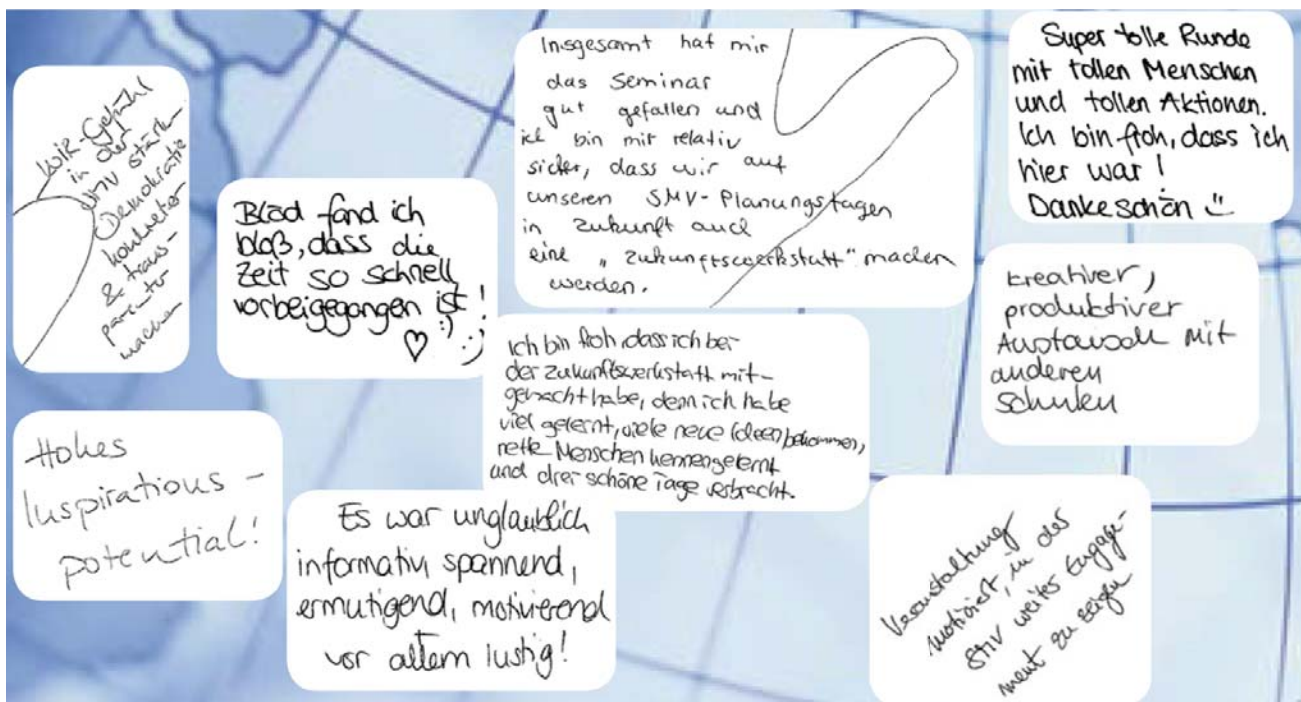 Wir-Gefühl
in der
SMV stärken
Demokratie
konkreter
& trans-
parenter
machen
Blöd fand ich
bloß, dass die
Zeit so schnell
vorbeigegangen ist!
♡ :) ;)
Insgesamt hat mir
das Seminar
gut gefallen und
ich bin mir relativ
sicher, dass wir auf
unseren SMV-Planungstagen
in Zukunft auch
eine „Zukunftswerkstatt" machen
werden.
Super tolle Runde
mit tollen Menschen
und tollen Aktionen.
Ich bin froh, dass ich
hier war!
Dankeschön :)
kreativer,
produktiver
Austausch mit
anderen
Schulen
Ich bin froh, dass ich bei
der Zukunftswerkstatt mit-
gemacht habe, denn ich habe
viel gelernt, viele neue Ideen bekommen,
nette Menschen kennengelernt
und drei schöne Tage verbracht.
Hohes
Inspirations-
potential!
Es war unglaublich
informativ, spannend,
ermutigend, motivierend
vor allem lustig!
Veranstaltung
motiviert, in der
SMV weiter Engage-
ment zu zeigen